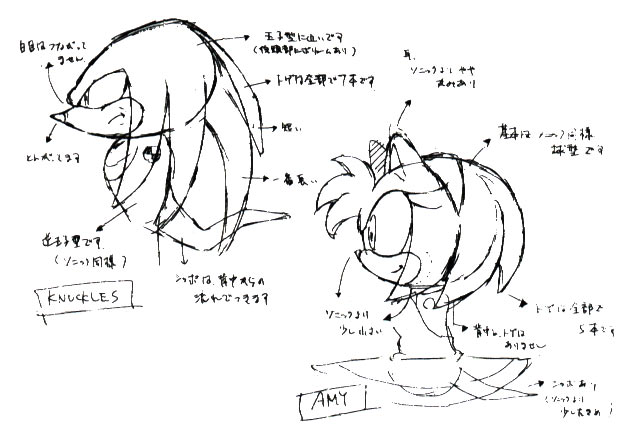 白目はつながって
ません
玉子型に近いです
(後頭部にボリュームあり)
トゲは全部で7本です
短い
一番長い
とんがってます
逆玉子型です
(ソニック同様)
シッポは、背中からの
流れでできます
KNUCKLES
耳、
ソニックよりやや
丸みあり
基本はソニック同様
球型です
ソニックより
少し小さい
トゲは全部で
5本です
背中に、トゲは
ありません
シッポあり
(ソニックより
少し大きめ)
AMY